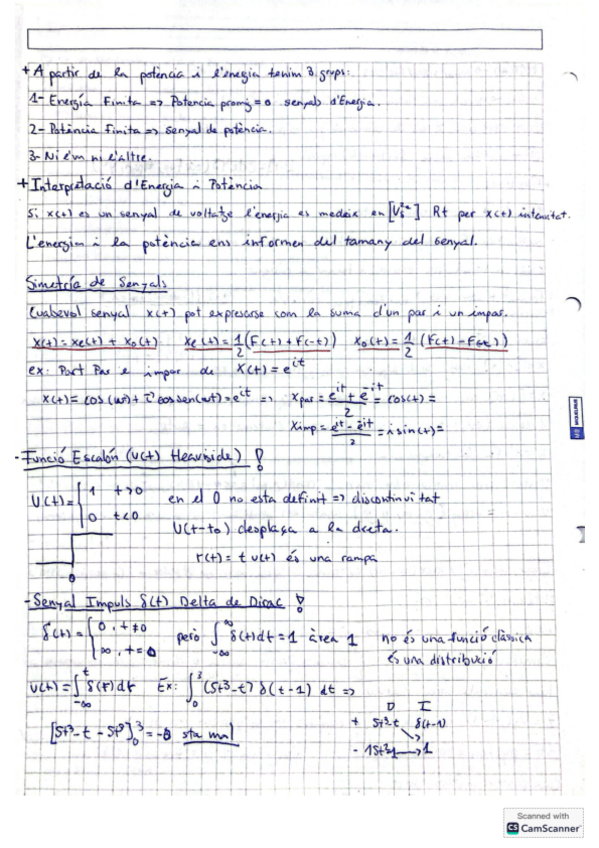 + A partir de la potència i l'energia tenim 3 grups:
1- Energía Finita => Potencia promig = 0 senyals d'Energia.
2- Potència finita => senyal de potència.
3- Ni l'un ni l'altre.
+ Interpretació d'Energia i Potència
Si x(t) es un senyal de voltatge l'energia es medeix en [V²s] Rt per x(t) intensitat.
L'energia i la potència ens informen del tamany del senyal.
Simetría de Senyals
Cualsevol senyal x(t) pot expresarse com la suma d'un par i un impar.
x(t) = xe(t) + xo(t) xe(t) = 1/2 (F(t) + F(-t)) xo(t) = 1/2 (F(t) - F(-t))
ex: Part Par e impar de X(t) = e^it
x(t) = cos(ωt) + sen(ωt) = e^it => Xpar = (e^it + e^-it)/2 = cos(t) =
Ximp = (e^it - e^-it)/2 = i sin(t) =
- Funció Escalón (u(t) Heaviside) !
U(t) = { 1 t>0 en el 0 no esta definit => discontinuitat
0 t<0
U(t-to) desplaça a la dreta.
r(t) = t u(t) és una rampa
0
- Senyal Impuls δ(t) Delta de Dirac !
δ(t) = { 0, t≠0 però ∫_-∞^∞ δ(t)dt = 1 àrea 1 no és una funció clàssica
∞, t=0 és una distribució
u(t) = ∫_-∞^t δ(t)dt Ex: ∫_0^3 (5t³-t) δ(t-1) dt =>
D I
+ 5t³-t δ(t-1)
[5t³ - t - 5t³]_0^3 = sta mal
- 15t²-1 → 1
Scanned with
CS CamScanner